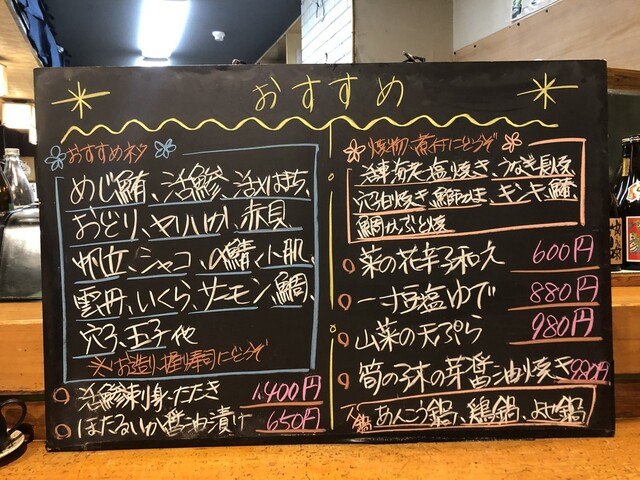 おすすめ
おすすめネタ
めじ鮪、活鯵、活〆はち、
おどり、ヤリイカ、赤貝
帆立、シャコ、〆鯖、小肌、
雲丹、いくら、サーモン、鯛、
穴子、玉子他
※お造り、握り寿司にどうぞ
活鯵刺身・たたき 1,400円
ほたるいか醤油漬け 650円
焼物・煮付にどうぞ
活車海老塩焼き、うなぎ長焼
穴子白焼き、鰤かま、キンキ、鱧
鯛かぶと焼
菜の花辛子和え 600円
一寸豆塩ゆで 880円
山菜の天ぷら 980円
筍の子木の芽醤油焼き 980円
鍋 あんこう鍋、鶏鍋、よせ鍋